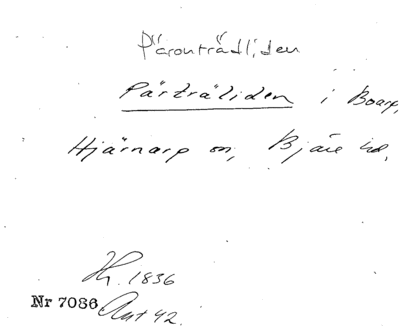 Päronträdliden
Pärträliden i Boarp,
Hjärnarp sn, Bjäre hd.
Hz. 1836
Nr 7086 Ant 42.